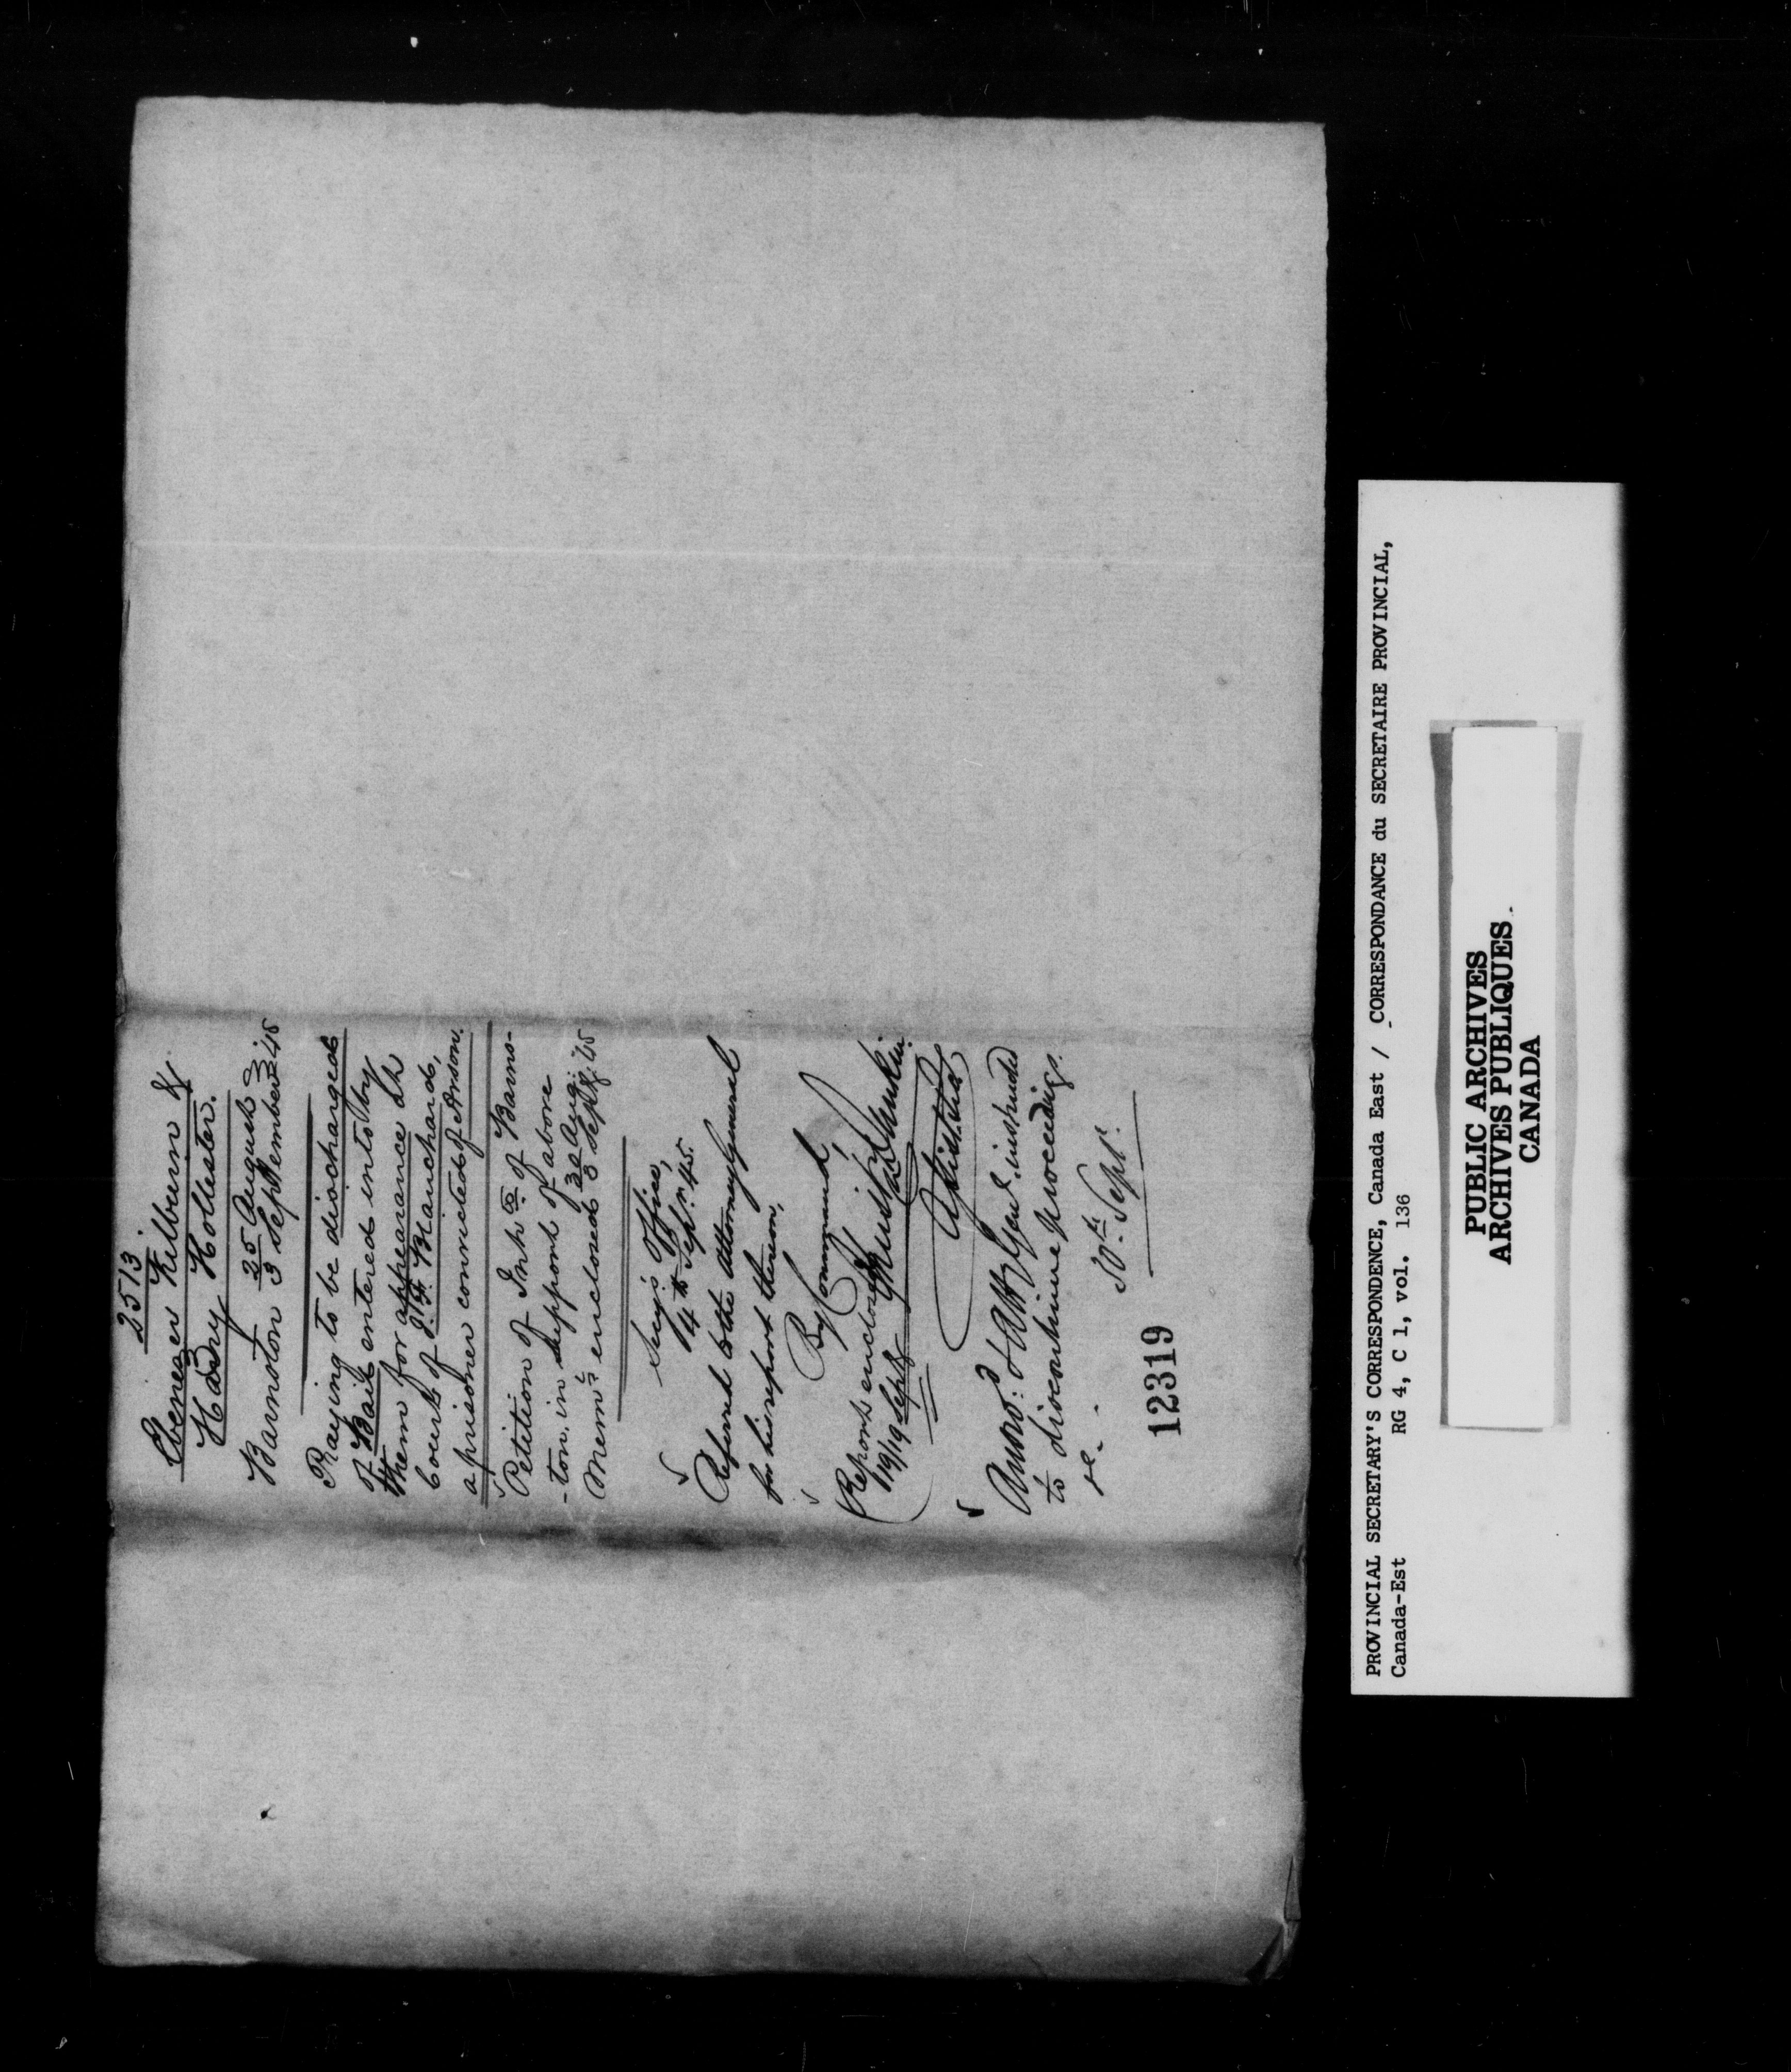 2513.
Ebenezer Kilburn &
Harry Hollester.
Barnston 25 August }
3 September } 45
Praying to be discharged
of Bail entered into by
them for appearance in
Court of J. H. Blanchard,
a prisoner convicted of Arson.
Petition of Inhts of Barns-
-ton, in support of above
Memo enclosed 30 Aug: 45
3 Sepr.
Secy's Office,
4th Sepr. 45.
Referred to the Attorney General
for his report thereon,
By Command,
(Reports enclosed
19/19 Sept
Answd: & Att. Genl. instructed
to discontinue proceedings.
&c.
30th Sept.
12319
PROVINCIAL SECRETARY'S CORRESPONDENCE, Canada East / CORRESPONDANCE du SECRETAIRE PROVINCIAL,
Canada-Est RG 4, C 1, vol. 136
PUBLIC ARCHIVES
ARCHIVES PUBLIQUES
CANADA